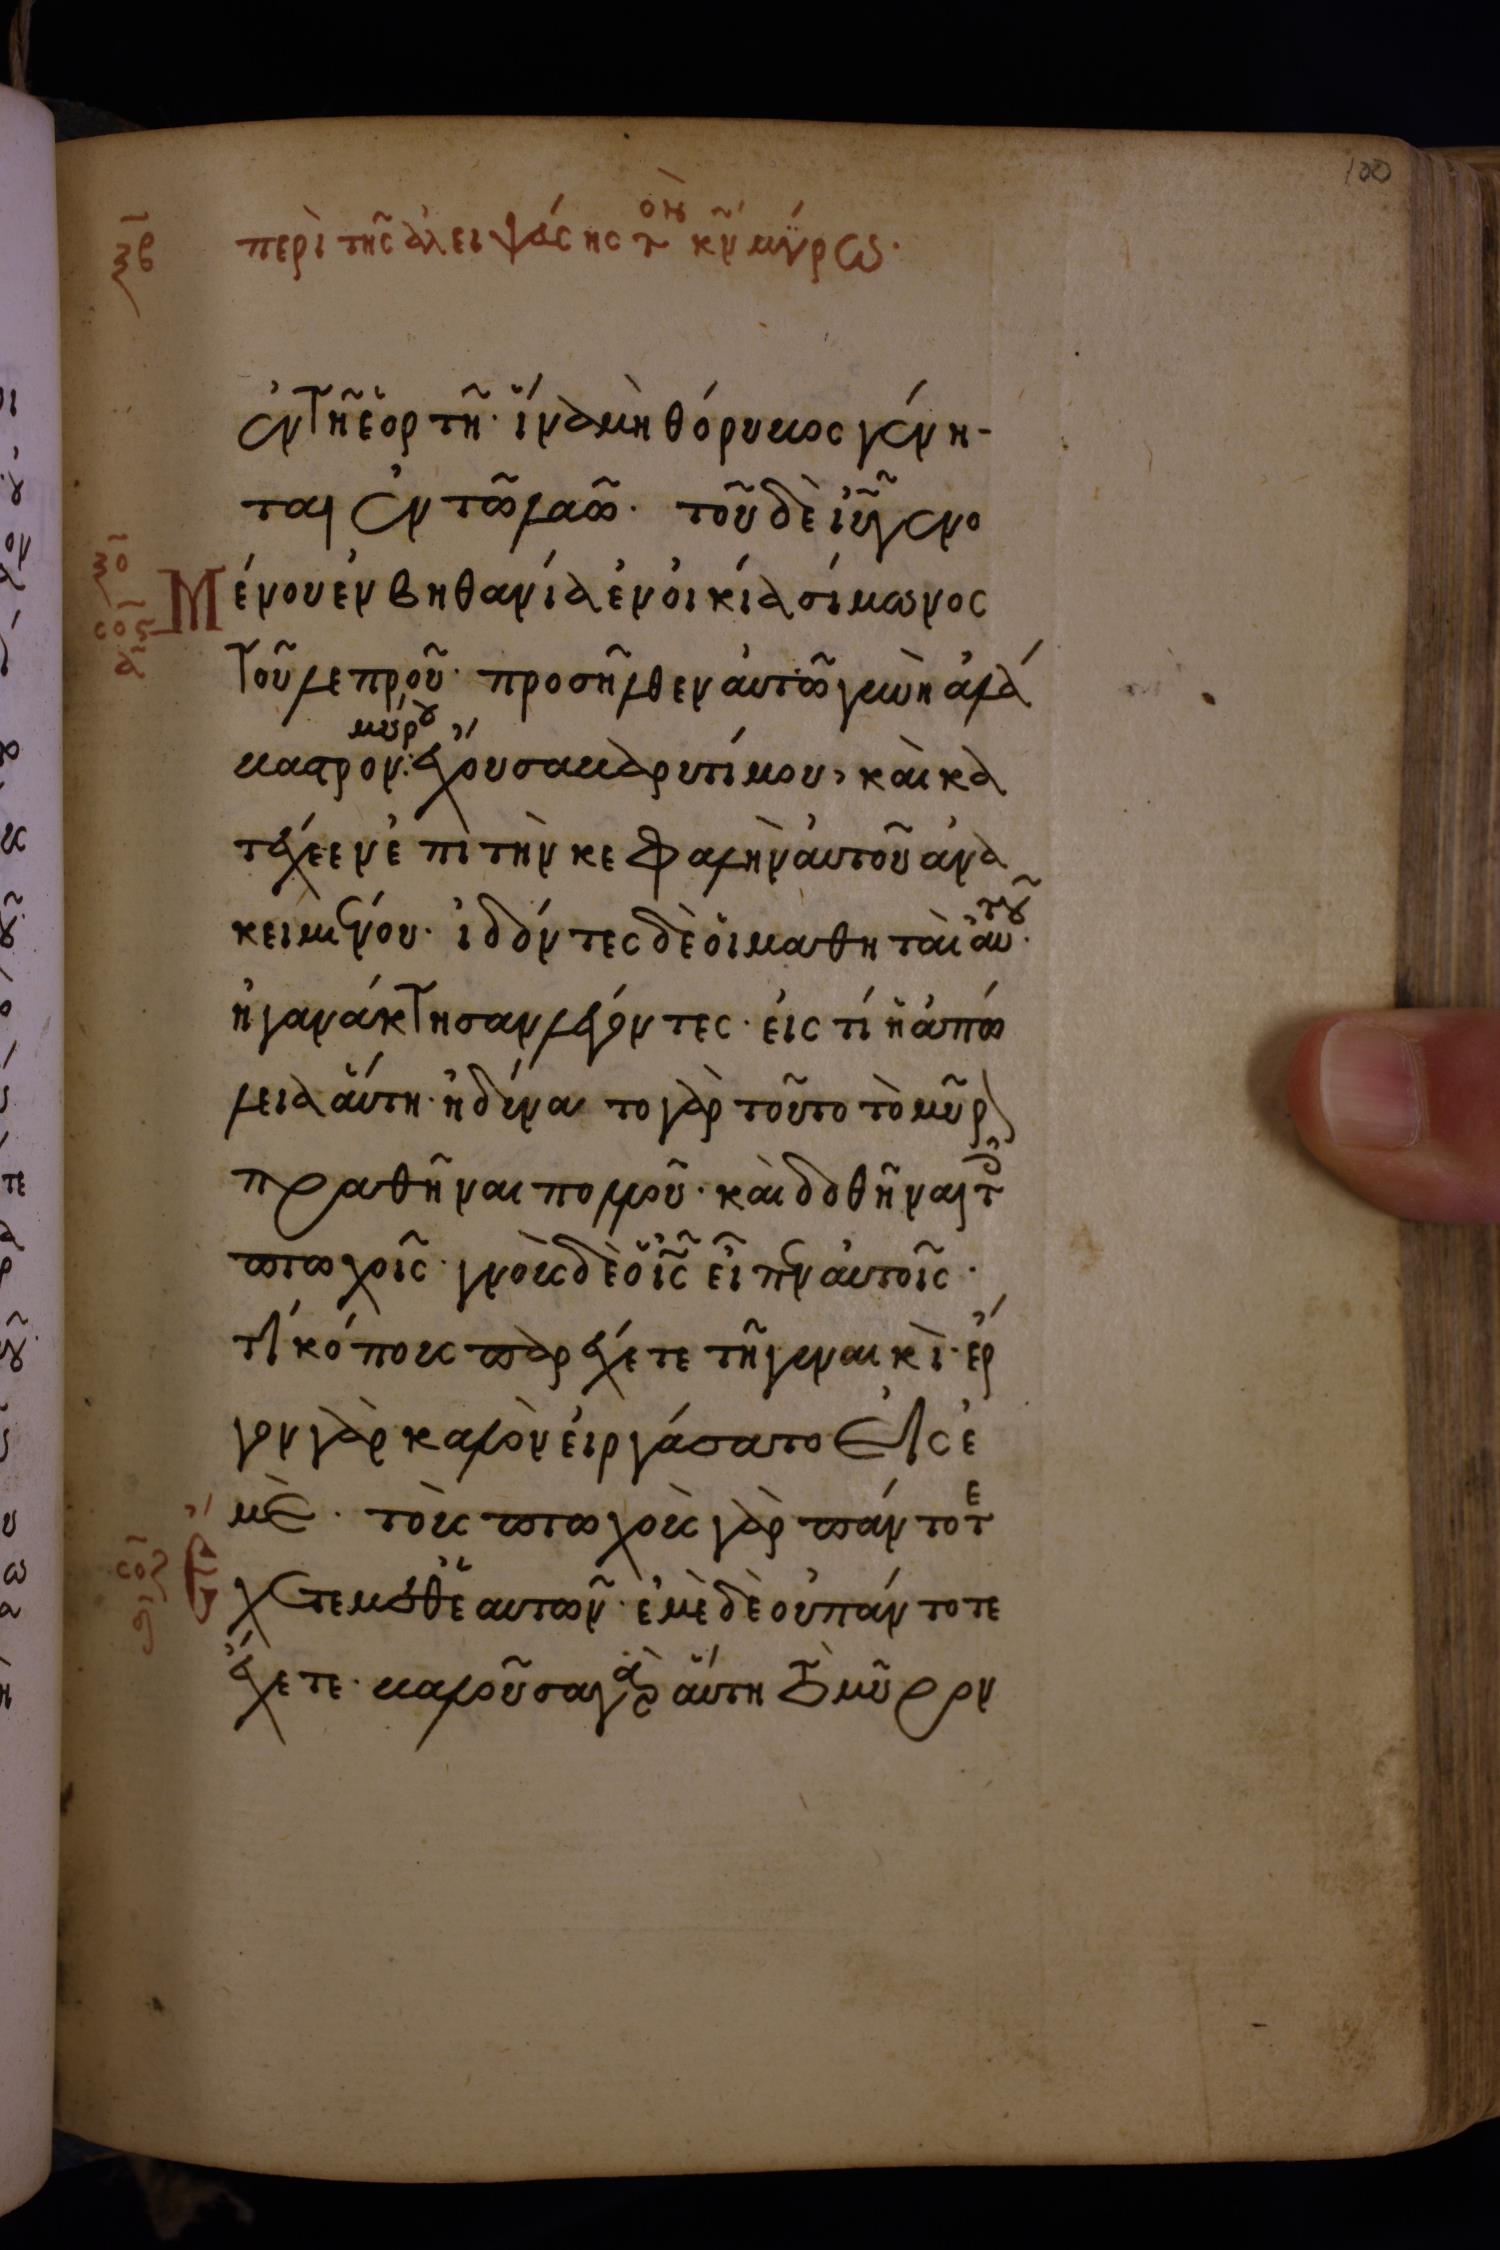 100
ξβ περὶ τῆς ἀλειψάσης τὸν κν̅ μύρω.
ἐν τῆ ἑορτῆ· ἵνα μὴ θόρυβος γένη-
ται ἐν τῶ λαῶ. τοῦ δὲ ιυ̅ γενο
μένου ἐν βηθανία ἐν οἰκία σίμωνος
τοῦ λεπροῦ· προσῆλθεν αὐτῶ γυνὴ ἀλά
βαστρον μύρου ἔχουσα βαρυτίμου, καὶ κα
τέχεεν ἐπὶ τὴν κεφαλὴν αὐτοῦ ἀνα
κειμένου· ἰδόντες δὲ οἱ μαθηταὶ αὐτοῦ·
ἠγανάκτησαν λέγοντες· εἰς τί ἡ ἀπώ
λεια αὕτη· ἠδύνατο γὰρ τοῦτο τὸ μῦρον
πραθῆναι πολλοῦ· καὶ δοθῆναι τοῖς
πτωχοῖς· γνοὺς δὲ ὁ ις̅ εἶπεν αὐτοῖς·
τί κόπους παρέχετε τῆ γυναικὶ· ἔρ
γον γὰρ καλὸν εἰργάσατο εἰς ἐ
μὲ· τοὺς πτωχοὺς γὰρ πάντοτε
ἔχετε μεθ ἑαυτῶν· ἐμὲ δὲ οὐ πάντοτε
ἔχετε· βαλοῦσα γὰρ αὕτη τὸ μῦρον